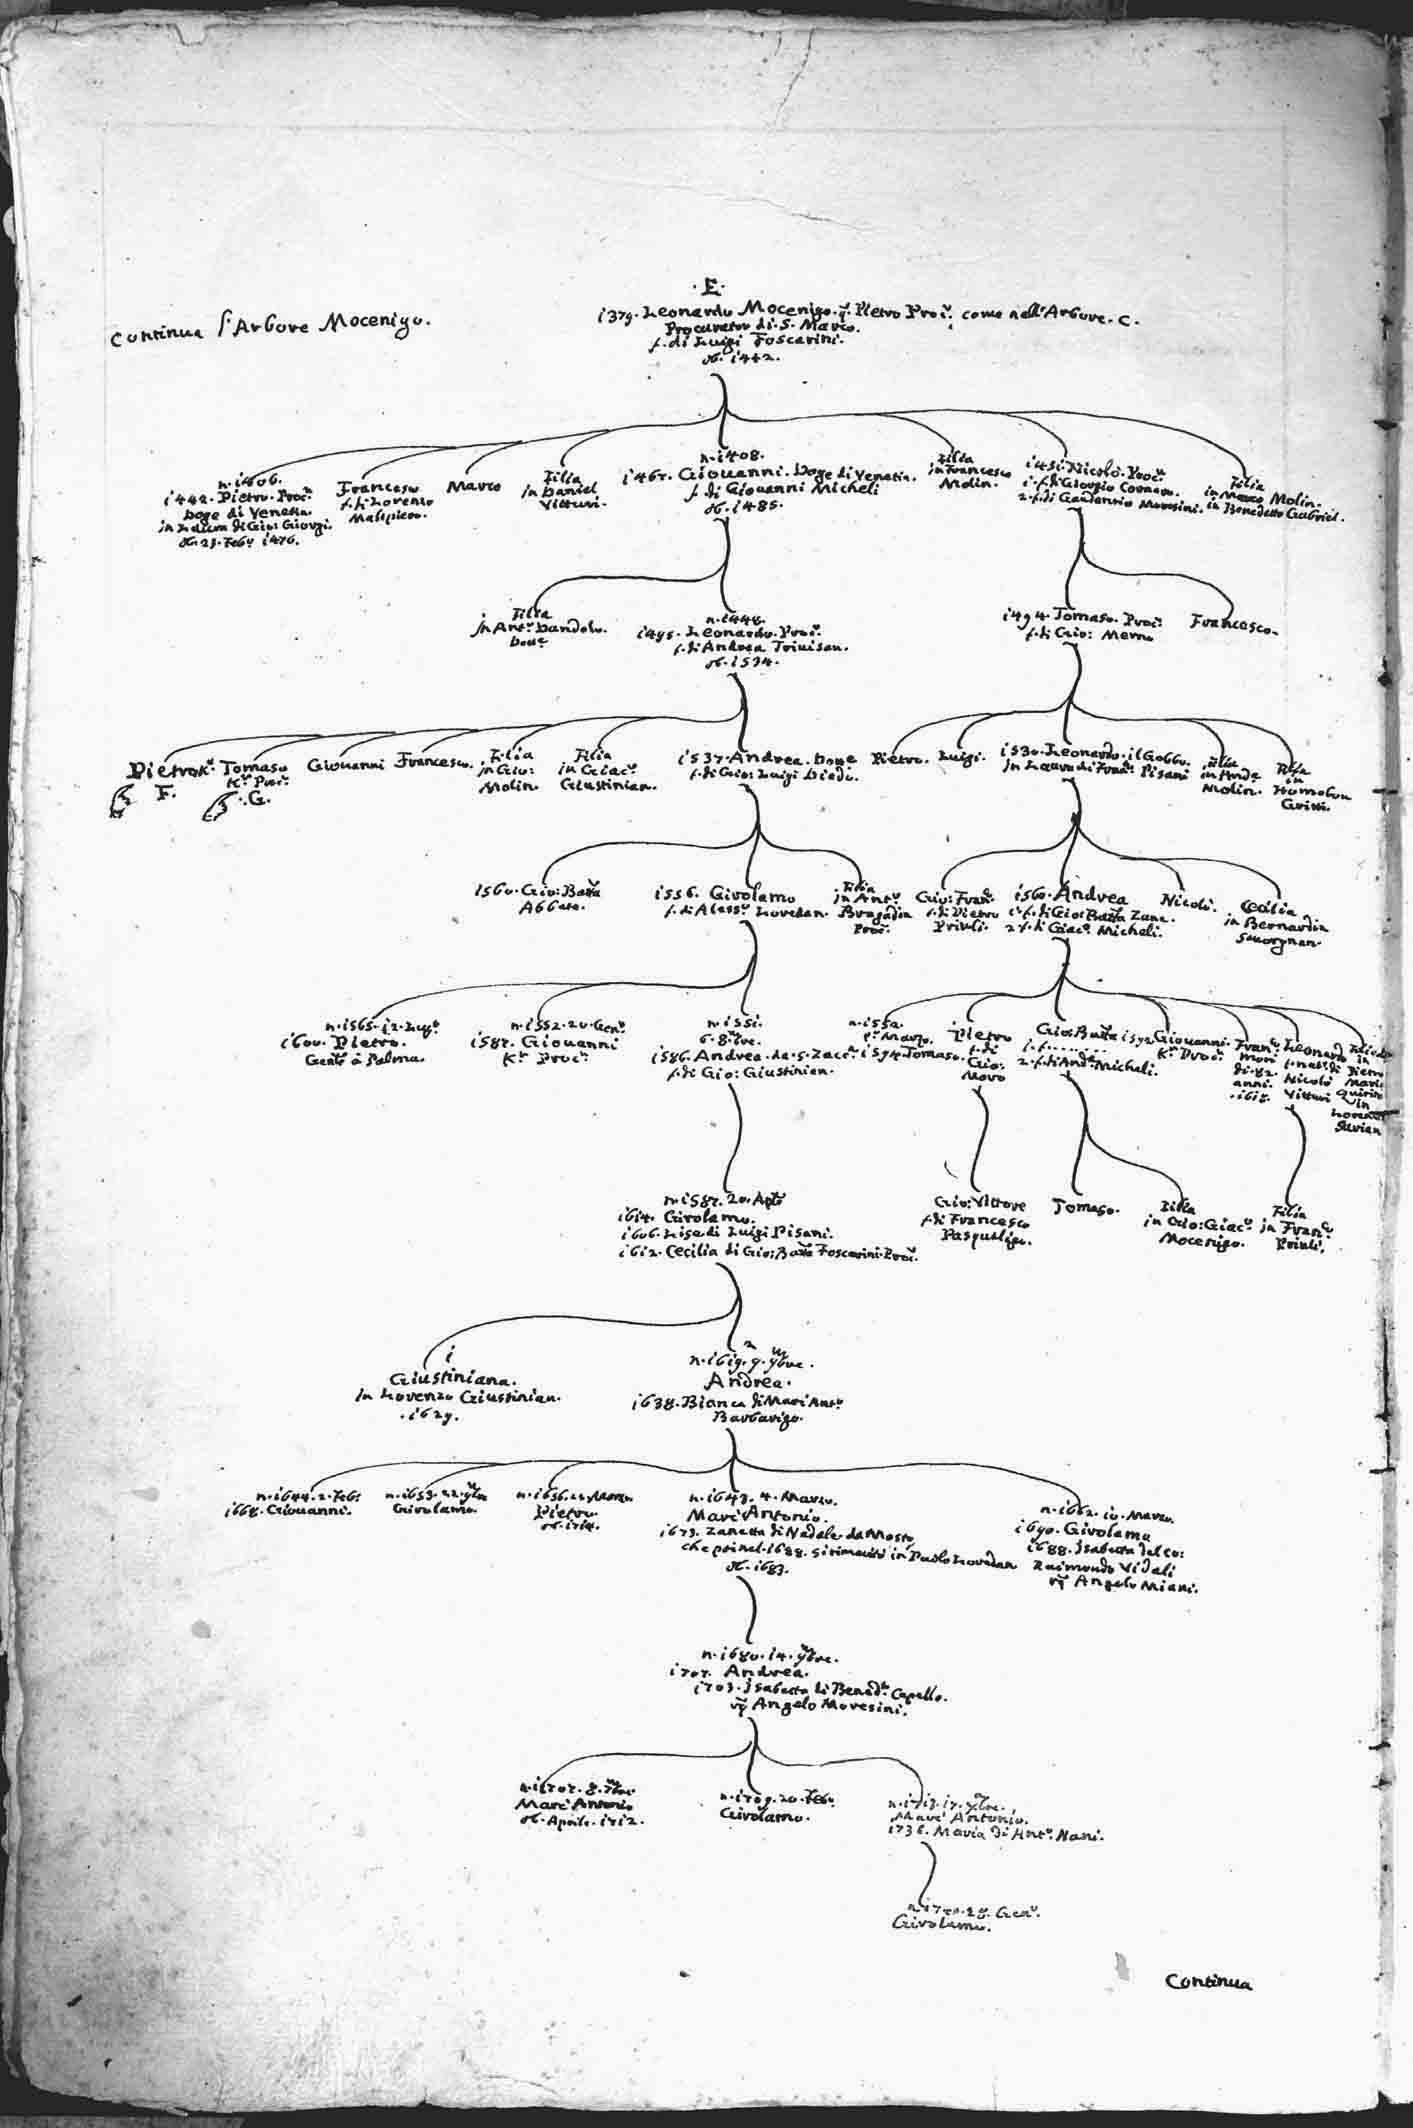 Continua l'Arbore Mocenigo.
.E.
1379. Leonardo Mocenigo. q. Pietro Proc.r, come nell'Arbore. C.
Procurator di S. Marco.
f. di Luigi Foscarini.
ob. 1442.
n. 1406.
1442. Pietro. Proc.r
Doge di Venetia.
in Laura di Gio: Giorgi.
ob. 23. Feb.o 1476.
Francesco
f. di Lorenzo
Malipiero.
Marco
Filia
in Daniel
Vitturi.
n. 1408.
Giovanni. Doge di Venetia.
f. di Giovanni Micheli
ob. 1485.
Filia
in Francesco
Molin.
1451. Nicolò. Proc.r
1. f. di Giorgio Cornaro.
2. f. di Gaudentio Moresini.
Filia
in Marco Molin.
in Benedetto Gabriel.
Filia
in Ant.o Dandolo.
Dott.r
n. 1448.
1495. Leonardo. Proc.r
f. di Andrea Trivisan.
ob. 1534.
1494. Tomaso. Proc.r
f. di Gio: Memo
Francesco.
Pietro K.r
F.
Tomaso
K.r Proc.r
.G.
Giovanni
Francesco.
Filia
in Gio:
Molin.
Filia
in Giac.o
Giustinian.
1537. Andrea. Doge
f. di Gio: Luigi Diedo.
Pietro.
Luigi.
1530. Leonardo. il Gobbo.
in Laura di Fran.o Pisani
Filia
in And.a
Molin.
Filia
in
Homobon
Gritti.
1560. Gio: Batta
Abbate.
1556. Girolamo
f. di Aless.o Loredan.
Filia
in Ant.o
Bragadin
Proc.r
Gio: Fran.o
f. di Pietro
Priuli.
1560. Andrea
1. f. di Gio: Batta Zane.
2. f. di Giac.o Micheli.
Nicolò.
Cecilia
in Bernardin
Savorgnan.
n. 1565. 12. Lug.o
1600. Pietro.
Gent.o à Palma.
n. 1552. 20. Gen.o
1587. Giovanni
K.r Proc.r
n. 1551.
6. 8.bre.
1586. Andrea. da. S. Zacc.a
f. di Gio: Giustinian.
n. 1552.
p.o Marzo.
1574. Tomaso.
Pietro
f. di
Gio:
Moro
Gio: Batta
1. f. . . . . . .
2. f. di And.a Micheli.
1592 Giovanni.
K.r Proc.r
Fran.o
morì
di 82.
anni.
. 1618.
Leonardo
f. nat. di
Nicolò
Vitturi
Filia
in
Pietro
Maria
Quirini
in
Lorenzo
Surian
n. 1587. 20. Ag.to
1614. Girolamo.
1606. Lisa di Luigi Pisani.
1612. Cecilia di Gio: Batta Foscarini. Proc.r
Gio: Vittore
f. di Francesco
Pasqualigo.
Tomaso.
Filia
in Gio: Giac.o
Mocenigo.
Filia
in Fran.o
Priuli.
1
Giustiniana.
in Lorenzo Giustinian.
. 1629.
2
n. 1619. 9. 9bre.
Andrea.
1638. Bianca di Marc'Ant.o
Barbarigo.
n. 1644. 2. Feb.o
1668. Giovanni.
n. 1653. 22. 9bre
Girolamo.
n. 1656. 22. Marzo
Pietro.
ob. 1714.
n. 1643. 4. Marzo.
Marc'Antonio.
1673. Zanetta di Nadale da Mosto
che poi nel. 1688. si rimaritò in Paolo Loredan
ob. 1683.
n. 1662. 10. Marzo.
1690. Girolamo
1688. Isabetta del Co:
Raimondo Vidali
v.a Angelo Miani.
n. 1680. 14. 9bre.
1707. Andrea.
1703. Isabetta di Bened.o Capello.
v.a Angelo Moresini.
n. 1707. 8. 7bre.
Marc'Antonio
ob. Aprile. 1712.
n. 1709. 20. Feb.o
Girolamo.
n. 1713. 17. 9bre.
Marc'Antonio.
1736. Maria di Ant.o Nani.
28. Gen.o
Girolamo.
Continua